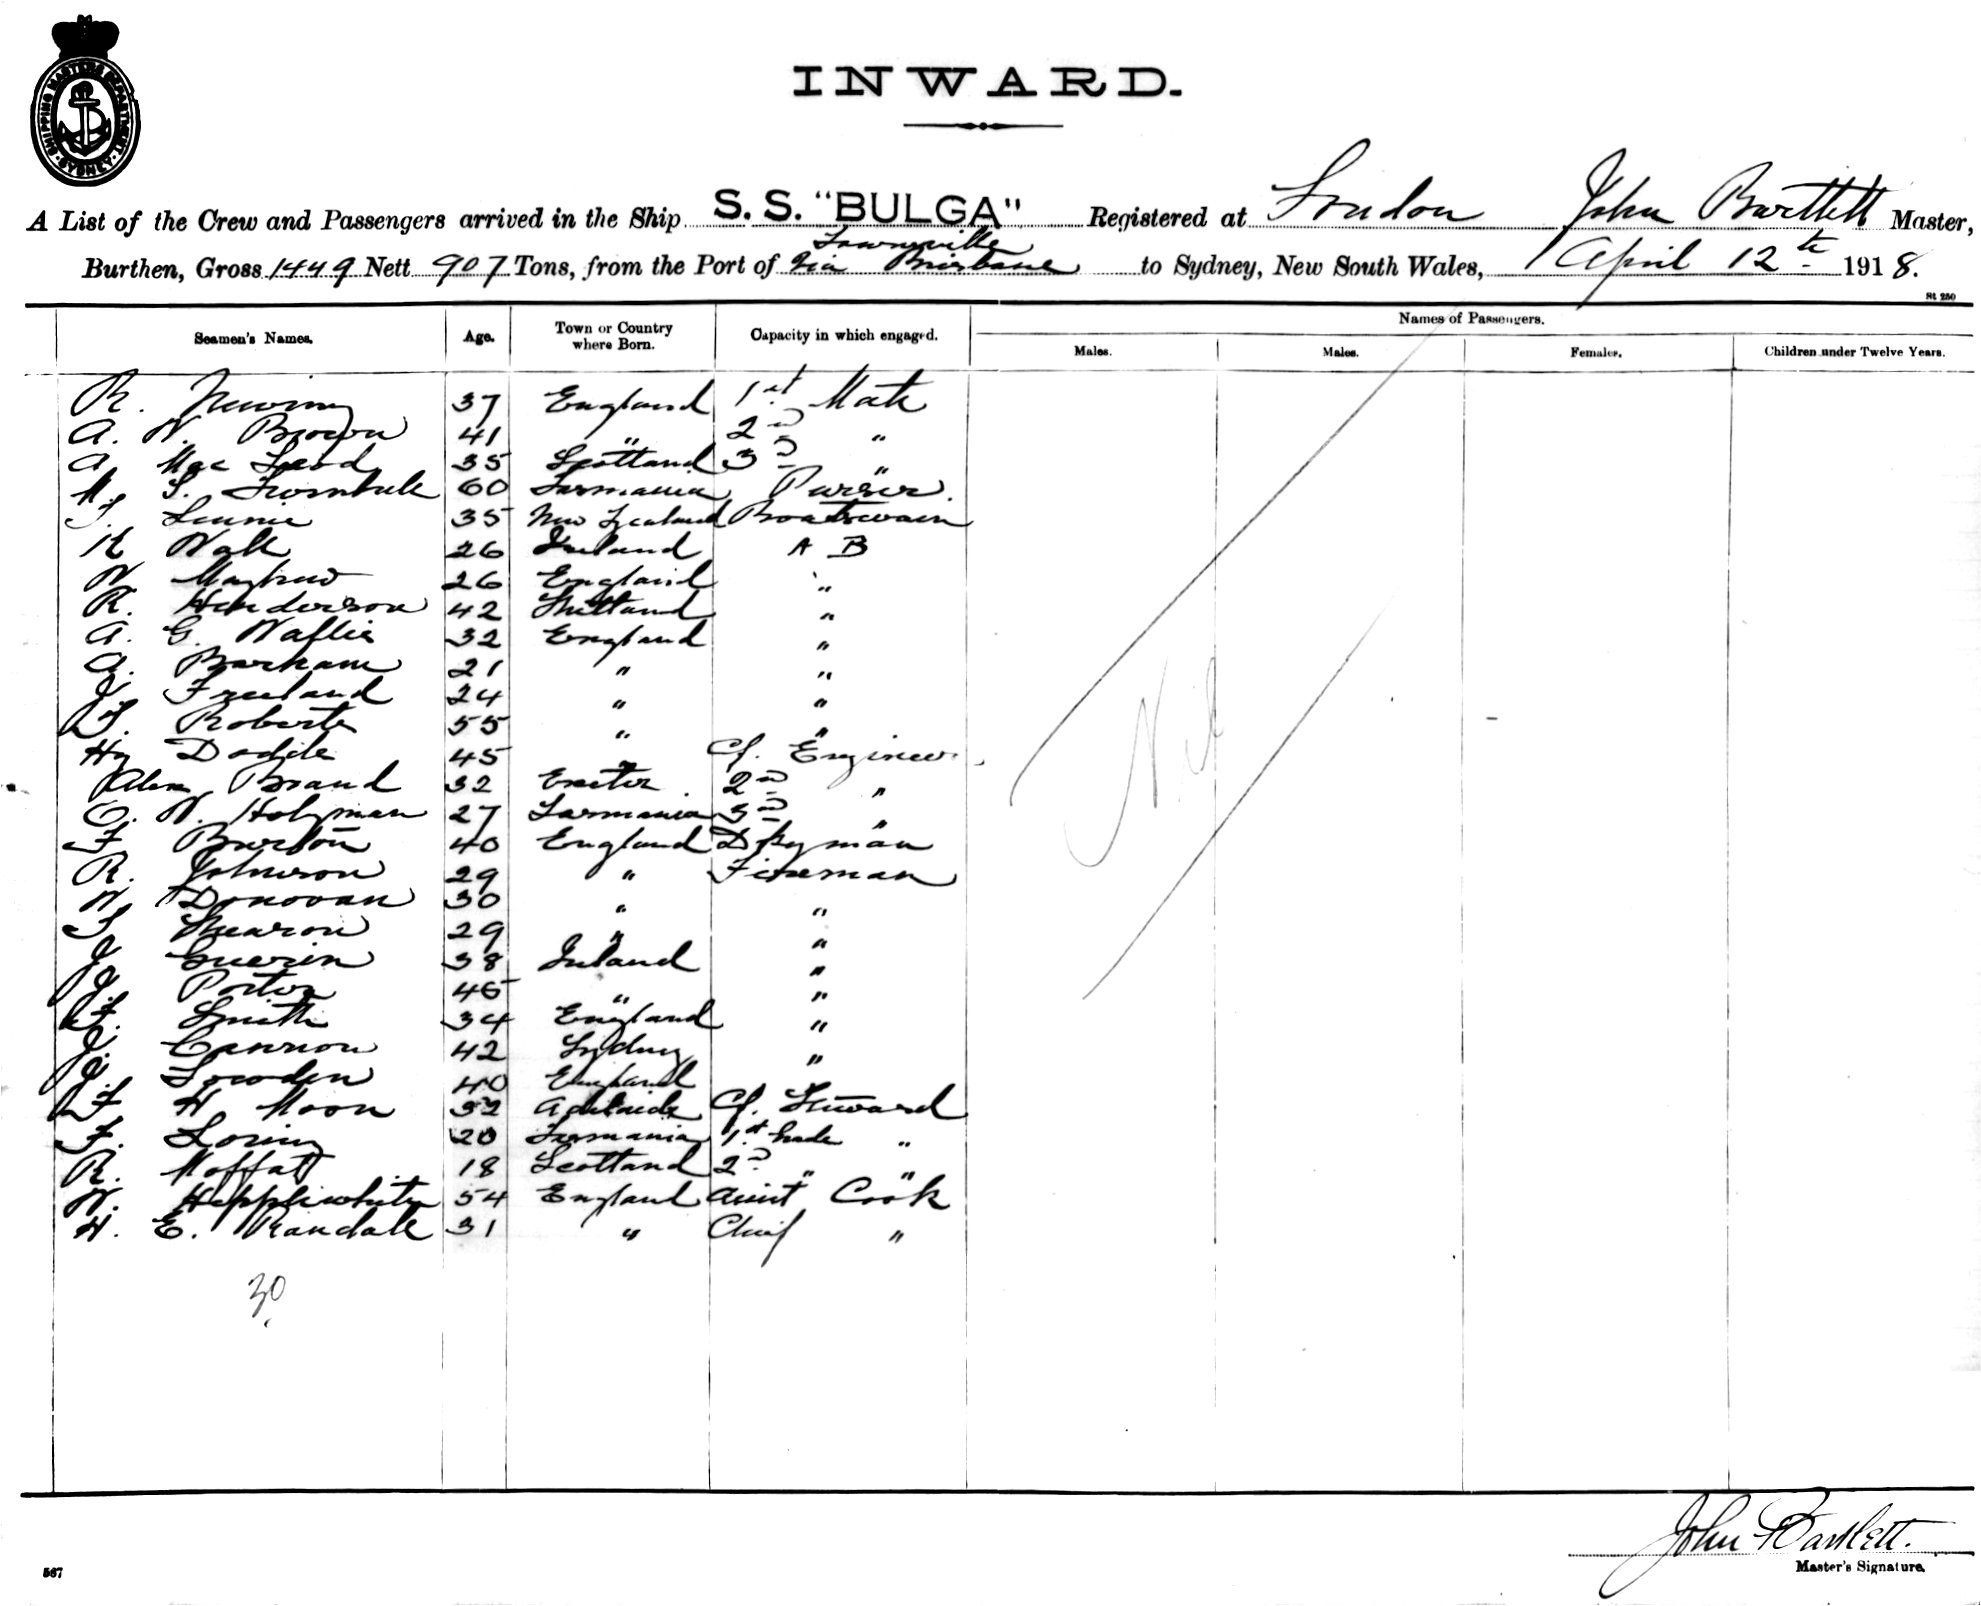 SHIPPING MASTERS DEPARTMENT · SYDNEY ·
INWARD.
A List of the Crew and Passengers arrived in the Ship S. S. "BULGA" Registered at London John Bartlett Master,
Townsville
Burthen, Gross 1449 Nett 907 Tons, from the Port of Via Brisbane to Sydney, New South Wales, April 12th 1918.
St 250
Seamen's Names. Age. Town or Country where Born. Capacity in which engaged. Names of Passengers.
Males. Males. Females. Children under Twelve Years.
R. Newing 37 England 1st Mate
A. W. Brown 41 " 2nd "
A Mac Leod 35 Scotland 3rd "
M. S. Turnbull 60 Tasmania Purser.
T. Lennie 35 New Zealand Boatswain
K Wall 26 Ireland A B
W Mayhew 26 England "
R. Henderson 42 Shetland "
A. G. 32 England "
A. Barham 21 " "
J Freeland 24 " "
T. Roberts 55 " "
Hy 45 " Cf. Engineer
Alex Brand 32 Exeter 2nd "
O. W. Holyman 27 Tasmania 3rd "
F Burton 40 England Dkyman
R. Johnson 29 " Fireman
W Donovan 30 " "
S Shearon 29 " "
J Guerin 38 Ireland "
J Porter 45 " "
F. Smith 34 England "
J. Cannon 42 Sydney "
J. Lowden 40 England "
F H Moon 32 Adelaide Cf. Steward
F. Loring 20 Tasmania 1st Grade "
R. Moffatt 18 Scotland 2nd " "
W. Hepplewhite 54 England Assist Cook
H. E. Randall 31 " Chief "
Nil
30
John Bartlett.
Master's Signature.
567